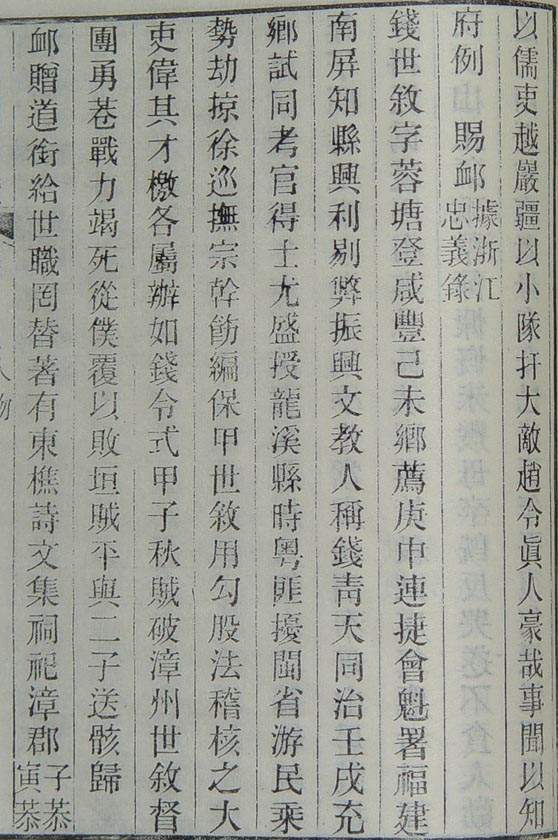 以儒吏越嚴疆以小隊扞大敵趙令眞人豪哉事聞以知
府例 賜䘏據浙江忠義錄
錢世敘字蓉塘登咸豐己未鄉薦庚申連捷會魁署福建
南屏知縣興利剔弊振興文教人稱錢靑天同治壬戌充
鄉試同考官得士尤盛授龍溪縣時粤匪擾閩省游民乘
勢劫掠徐巡撫宗幹飭編保甲世敘用勾股法稽核之大
吏偉其才檄各屬辦如錢令式甲子秋賊破漳州世敘督
團勇巷戰力竭死從僕覆以敗垣賊平與二子送骸歸
䘏贈道銜給世職罔替著有東樵詩文集祠祀漳郡子恭寅恭